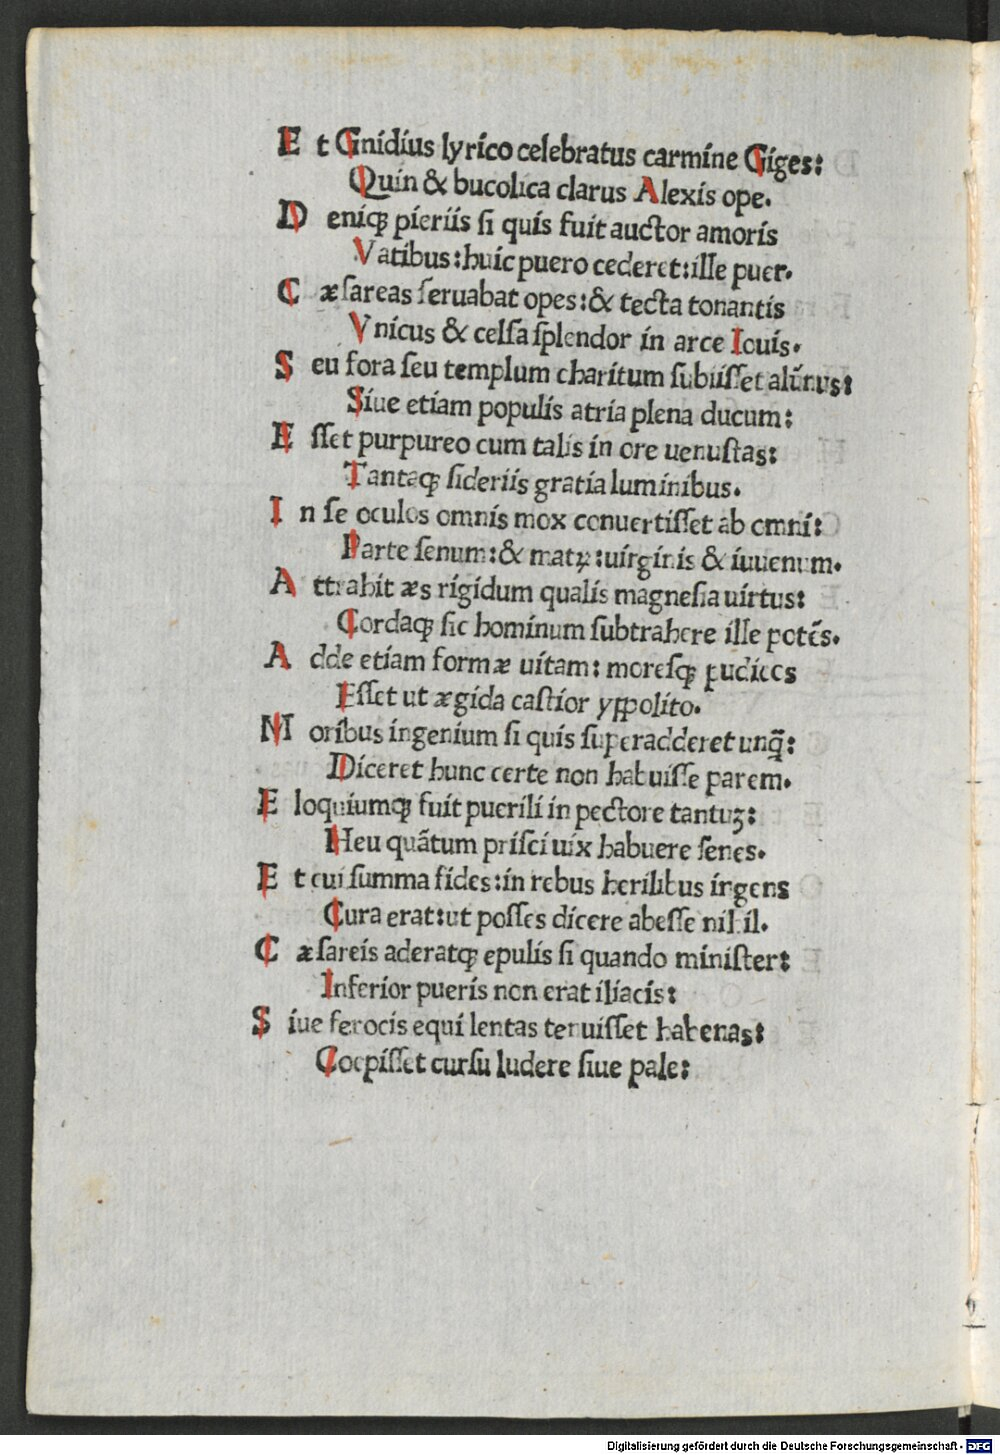 Et Gnidius lyrico celebratus carmine Giges:
Quin & bucolica clarus Alexis ope.
Deniqꝫ pieriis ſi quis fuit auctor amoris
Vatibus: huic puero cederet: ille puer.
Cæſareas ſeruabat opes: & tecta tonantis
Vnicus & celſa ſplendor in arce Iouis.
Seu fora ſeu templum charitum ſubiiſſet alūnus:
Siue etiam populis atria plena ducum:
Eſſet purpureo cum talis in ore uenuſtas:
Tantaqꝫ ſideriis gratia luminibus.
In ſe oculos omnis mox conuertiſſet ab omni:
Parte ſenum: & matꝝ: uirginis & iuuenum.
Attrahit æs rigidum qualis magneſia uirtus:
Cordaqꝫ ſic hominum ſubtrahere ille potēs.
Adde etiam formæ uitam: moreſqꝫ pudicos
Eſſet ut ægida caſtior yppolito.
Moribus ingenium ſi quis ſuperadderet unq̄:
Diceret hunc certe non habuiſſe parem.
Eloquiumqꝫ fuit puerili in pectore tantuꝫ:
Heu quātum priſci uix habuere ſenes.
Et cui ſumma fides: in rebus herilibus ingens
Cura erat: ut poſſes dicere abeſſe nihil.
Cæſareis aderatqꝫ epulis ſi quando miniſter:
Inferior pueris non erat iliacis:
Siue ferocis equi lentas tenuiſſet habenas:
Coepiſſet curſu ludere ſiue pale:
Digitalisierung gefördert durch die Deutsche Forschungsgemeinschaft - DFG